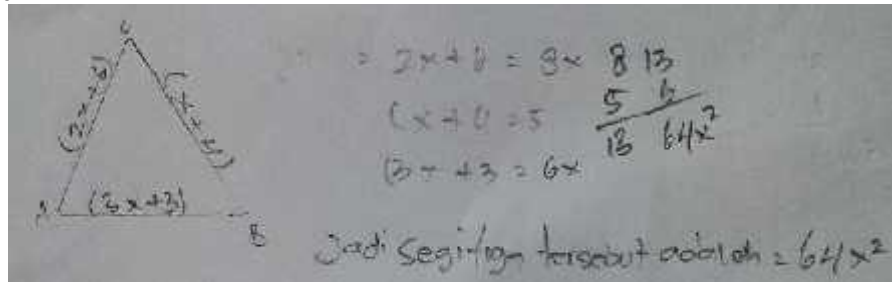 C
(2x+8)
(x+4)
(3x+3)
A
B
= 2x+8 = 8x 8 13
(x+4 = 5 5 6
(3x+3 = 6x 13 64x²
Jadi segitiga tersebut adalah = 64x²